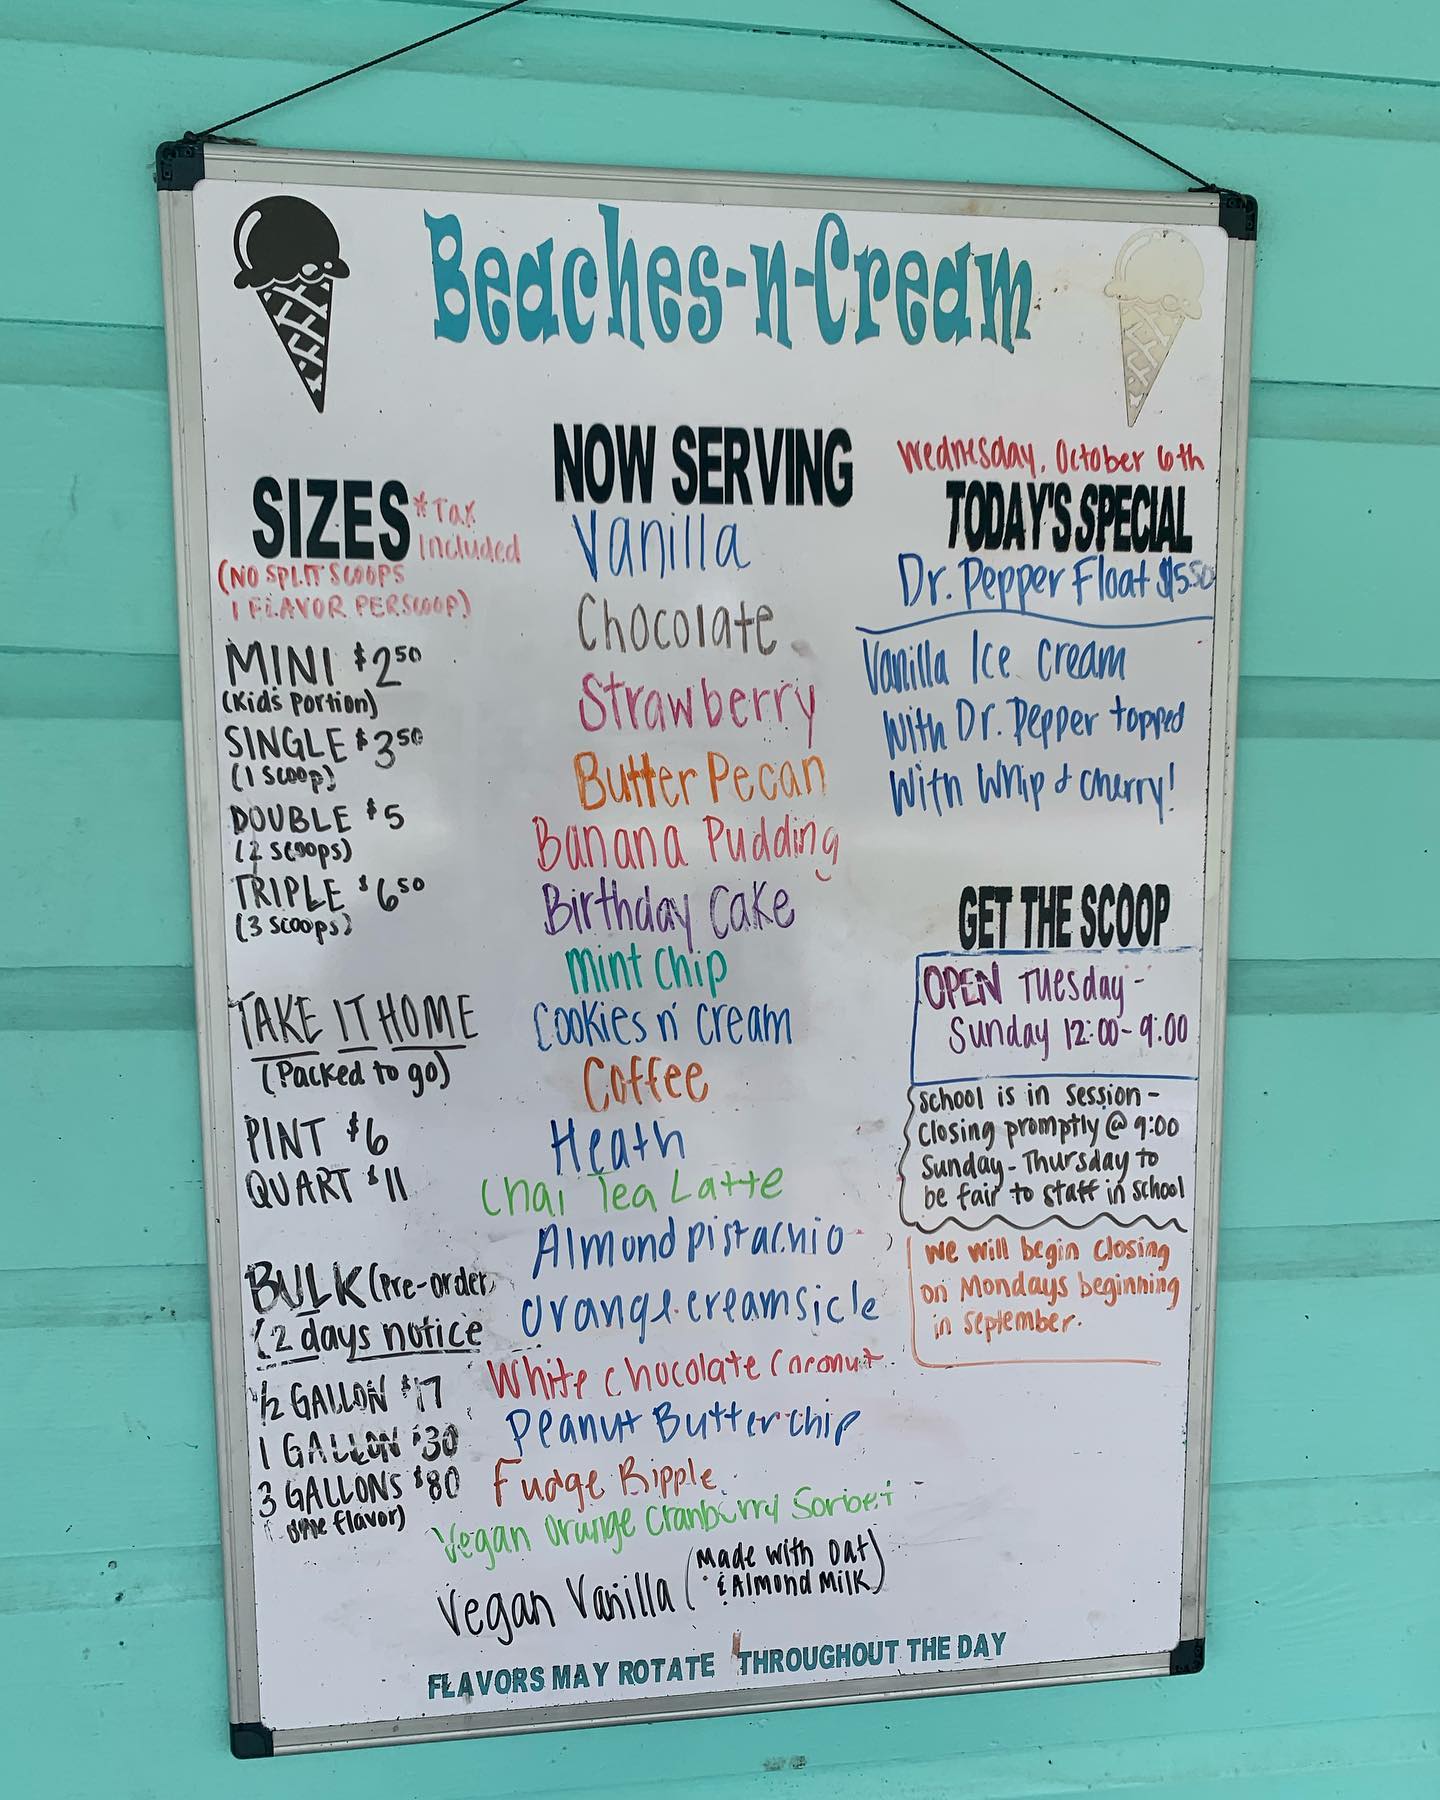 Beaches-n-Cream
SIZES
*Tax
Included
(NO SPLIT SCOOPS
1 FLAVOR PER SCOOP)
MINI $2.50
(Kids Portion)
SINGLE $3.50
(1 Scoop)
DOUBLE $5
(2 Scoops)
TRIPLE $6.50
(3 Scoops)
TAKE IT HOME
(Packed to go)
PINT $6
QUART $11
BULK (Pre-order,
(2 days notice
1/2 GALLON $17
1 GALLON $30
3 GALLONS $80
one flavor)
NOW SERVING
Vanilla
Chocolate
Strawberry
Butter Pecan
Banana Pudding
Birthday Cake
Mint Chip
Cookies n' Cream
Coffee
Heath
Chai Tea Latte
Almond Pistachio
Orange creamsicle
White Chocolate Coconut
Peanut Butter chip
Fudge Ripple
Vegan Orange Cranberry Sorbet
Vegan Vanilla (Made with Oat
& Almond Milk)
FLAVORS MAY ROTATE THROUGHOUT THE DAY
Wednesday, October 6th
TODAY'S SPECIAL
Dr. Pepper Float $5.50
Vanilla Ice Cream
With Dr. Pepper topped
With Whip & Cherry!
GET THE SCOOP
OPEN Tuesday-
Sunday 12:00-9:00
School is in session-
Closing promptly @ 9:00
Sunday-Thursday to
be fair to staff in school
We will begin closing
on Mondays beginning
in September.